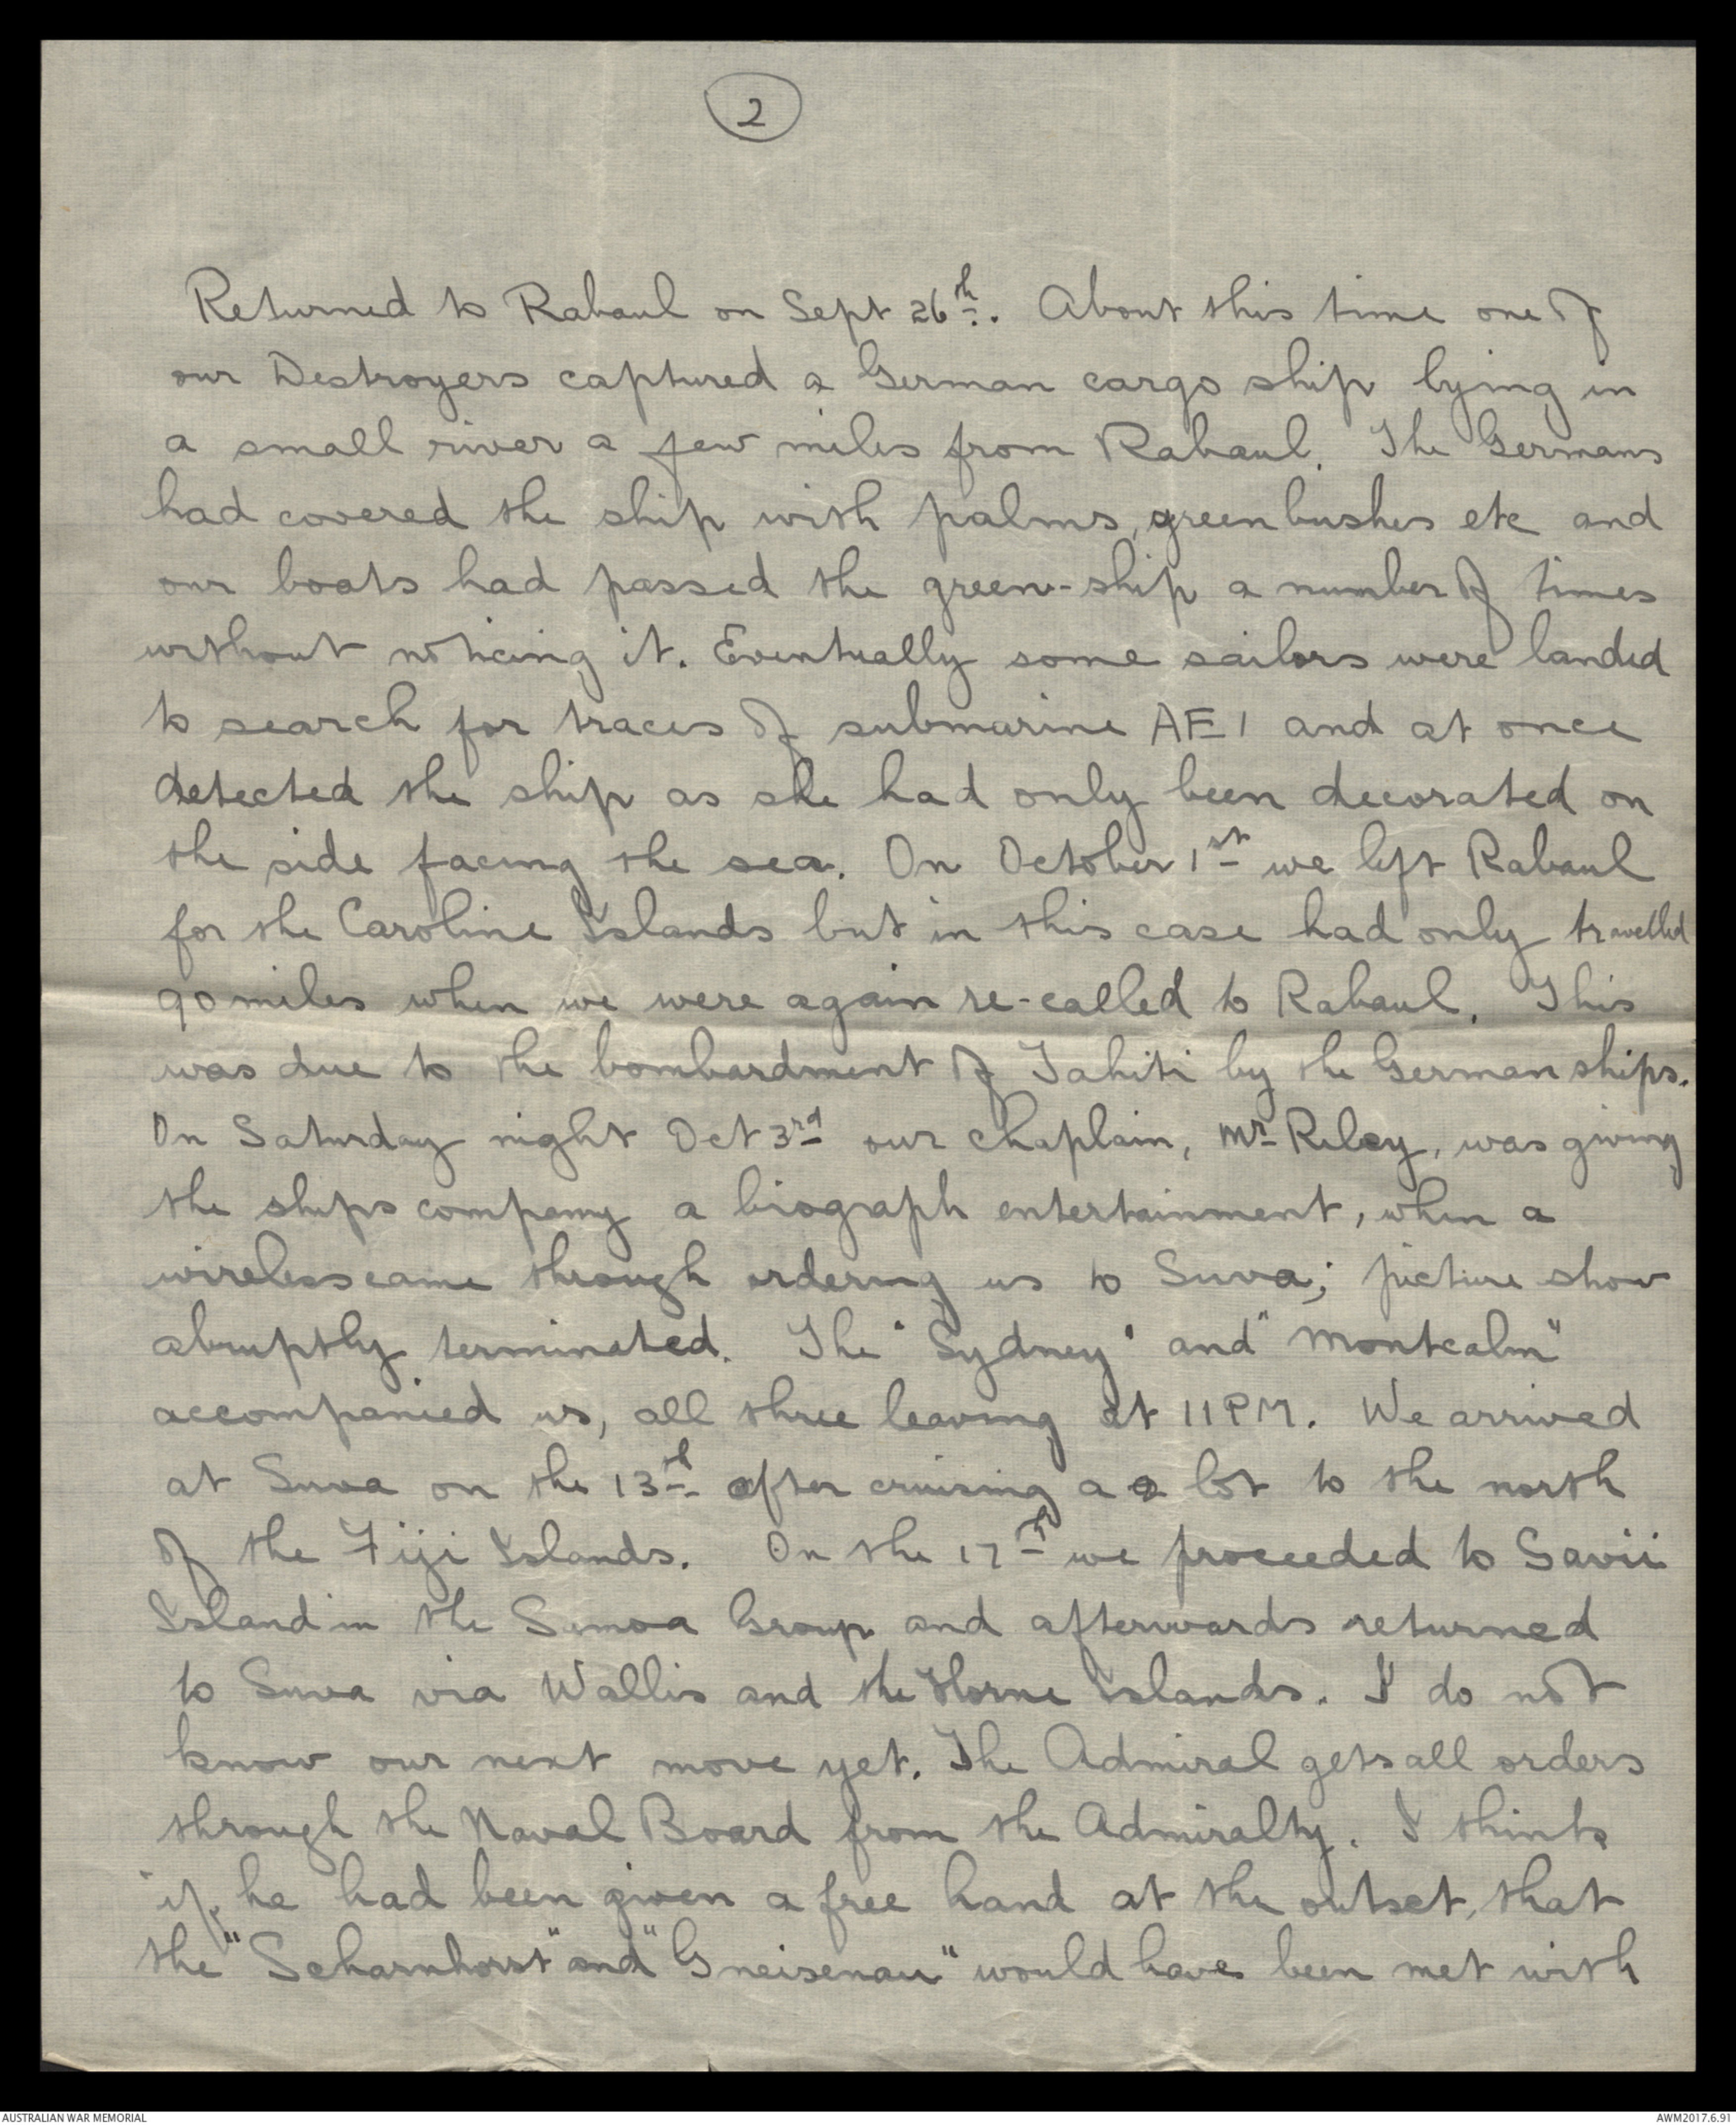 2
Returned to Rabaul on Sept 26th. About this time one of
our Destroyers captured a German cargo ship lying in
a small river a few miles from Rabaul. The Germans
had covered the ship with palms, green bushes etc and
our boats had passed the green-ship a number of times
without noticing it. Eventually some sailors were landed
to search for traces of submarine AE1 and at once
detected the ship as she had only been decorated on
the side facing the sea. On October 1st we left Rabaul
for the Caroline Islands but in this case had only travelled
90 miles when we were again re-called to Rabaul. This
was due to the bombardment of Tahiti by the German ships.
On Saturday night Oct 3rd our chaplain, Mr Riley, was giving
the ships company a biograph entertainment, when a
wireless came through ordering us to Suva; picture show
abruptly terminated. The "Sydney" and "Montcalm"
accompanied us, all three leaving at 11PM. We arrived
at Suva on the 13th after cruising a a lot to the north
of the Fiji Islands. On the 17th we proceeded to Savii
Island in the Samoa Group and afterwards returned
to Suva via Wallis and the Horne Islands. I do not
know our next move yet. The Admiral gets all orders
through the Naval Board from the Admiralty. I think
if he had been given a free hand at the outset, that
the "Scharnhorst" and "Gneisenau" would have been met with
AUSTRALIAN WAR MEMORIAL
AWM2017.6.91